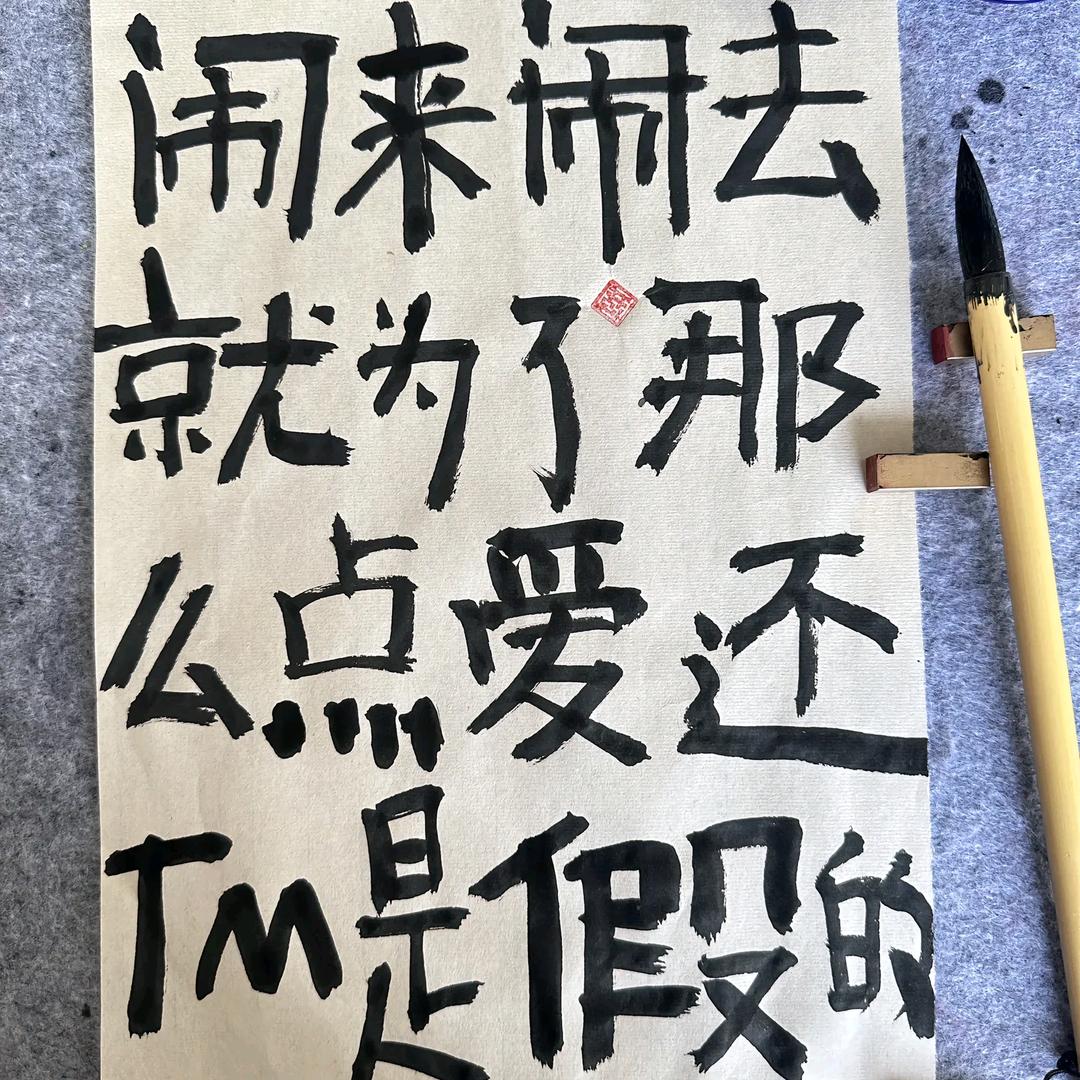 闹来闹去
就为了那
么点爱还
TM是假的